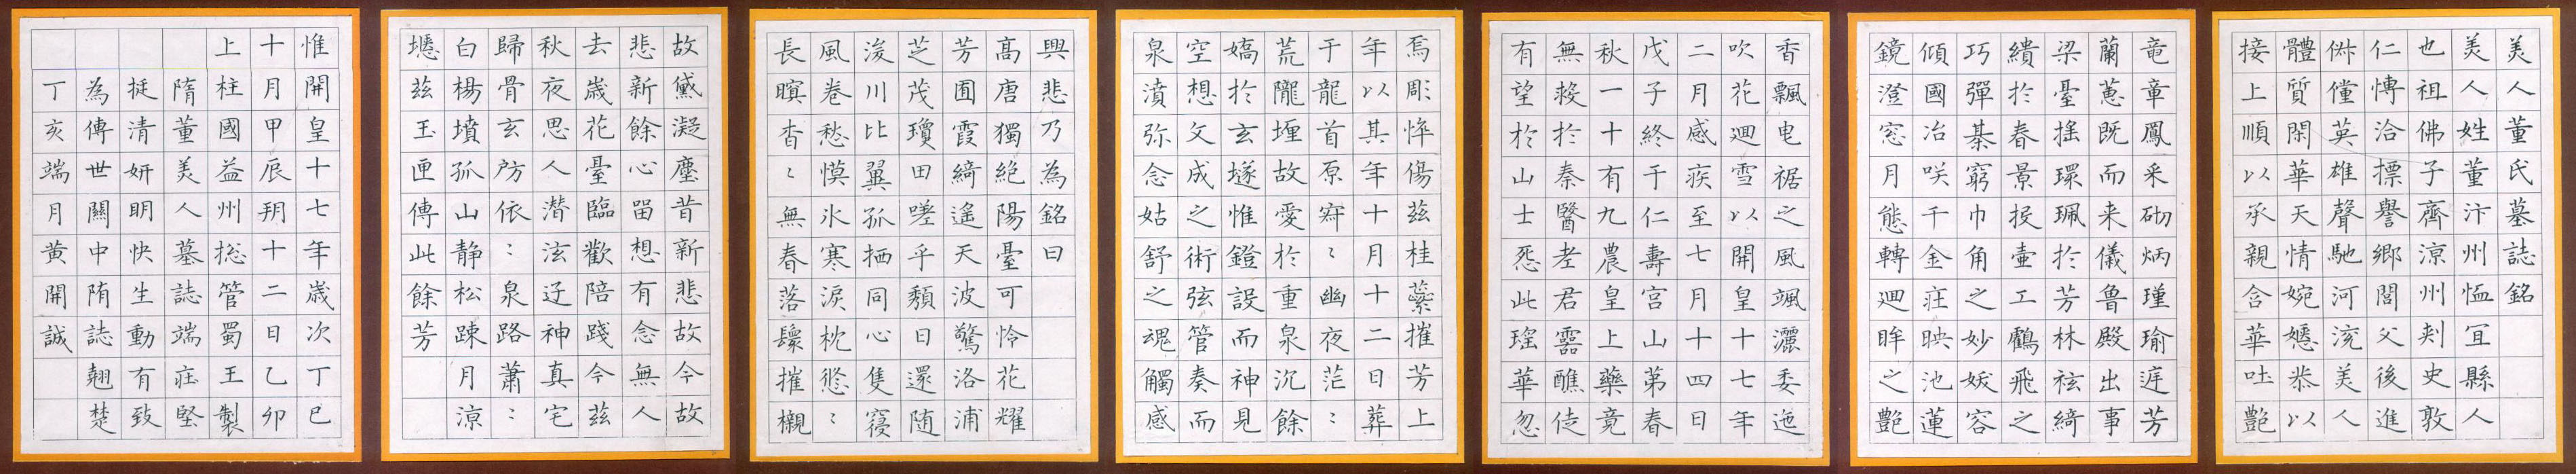 美人董氏墓誌銘
美人姓董汴州恤宜縣人
也祖佛子齊涼州刾史敦
仁博洽摽譽鄉閭父後進
俶僮英雄聲馳河流美人
體質閑華天情婉嫕恭以
接上順以承親含華吐艷
竜章鳳采砌炳瑾瑜庭芳
蘭蕙既而来儀魯殿出事
梁臺搖環珮於芳林袨綺
繢於春景投壷工鶴飛之
巧彈棊窮巾角之妙妖容
傾國冶咲千金莊映池蓮
鏡澄窓月態轉迴眸之艷
香飄曳裾之風颯灑委迤
吹花迴雪以開皇十七年
二月感疾至七月十四日
戊子終于仁壽宮山第春
秋一十有九農皇上藥竟
無救於秦醫老君靈醮徒
有望於山士怨此瑤華忽
焉彫悴傷茲桂蘂摧芳上
年以其年十月十二日葬
于龍首原寂〻幽夜茫〻
荒隴埋故愛於重泉沉餘
嬌於玄墜惟鐙設而神見
空想文成之術弦管奏而
泉濆弥念姑舒之魂觸感
興悲乃為銘曰
高唐獨絕陽臺可怜花耀
芳圃霞綺遙天波驚洛浦
芝茂瓊田嗟乎頹日還随
浚川比翼孤栖同心隻寢
風卷愁慔氷寒淚枕悠〻
長瞑杳〻無春落鬟摧櫬
故黛凝塵昔新悲故今故
悲新餘心留想有念無人
去歲花臺臨歡陪踐今茲
秋夜思人潜泫迂神真宅
歸骨玄房依〻泉路蕭〻
白楊墳孤山静松踈月涼
茲玉匣傳此餘芳
惟開皇十七年歲次丁巳
十月甲辰朔十二日乙卯
上柱國益州捴管蜀王製
隋董美人墓誌端莊堅
挺清妍明快生動有致
為傳世關中隋誌翹楚
丁亥端月黃開誠